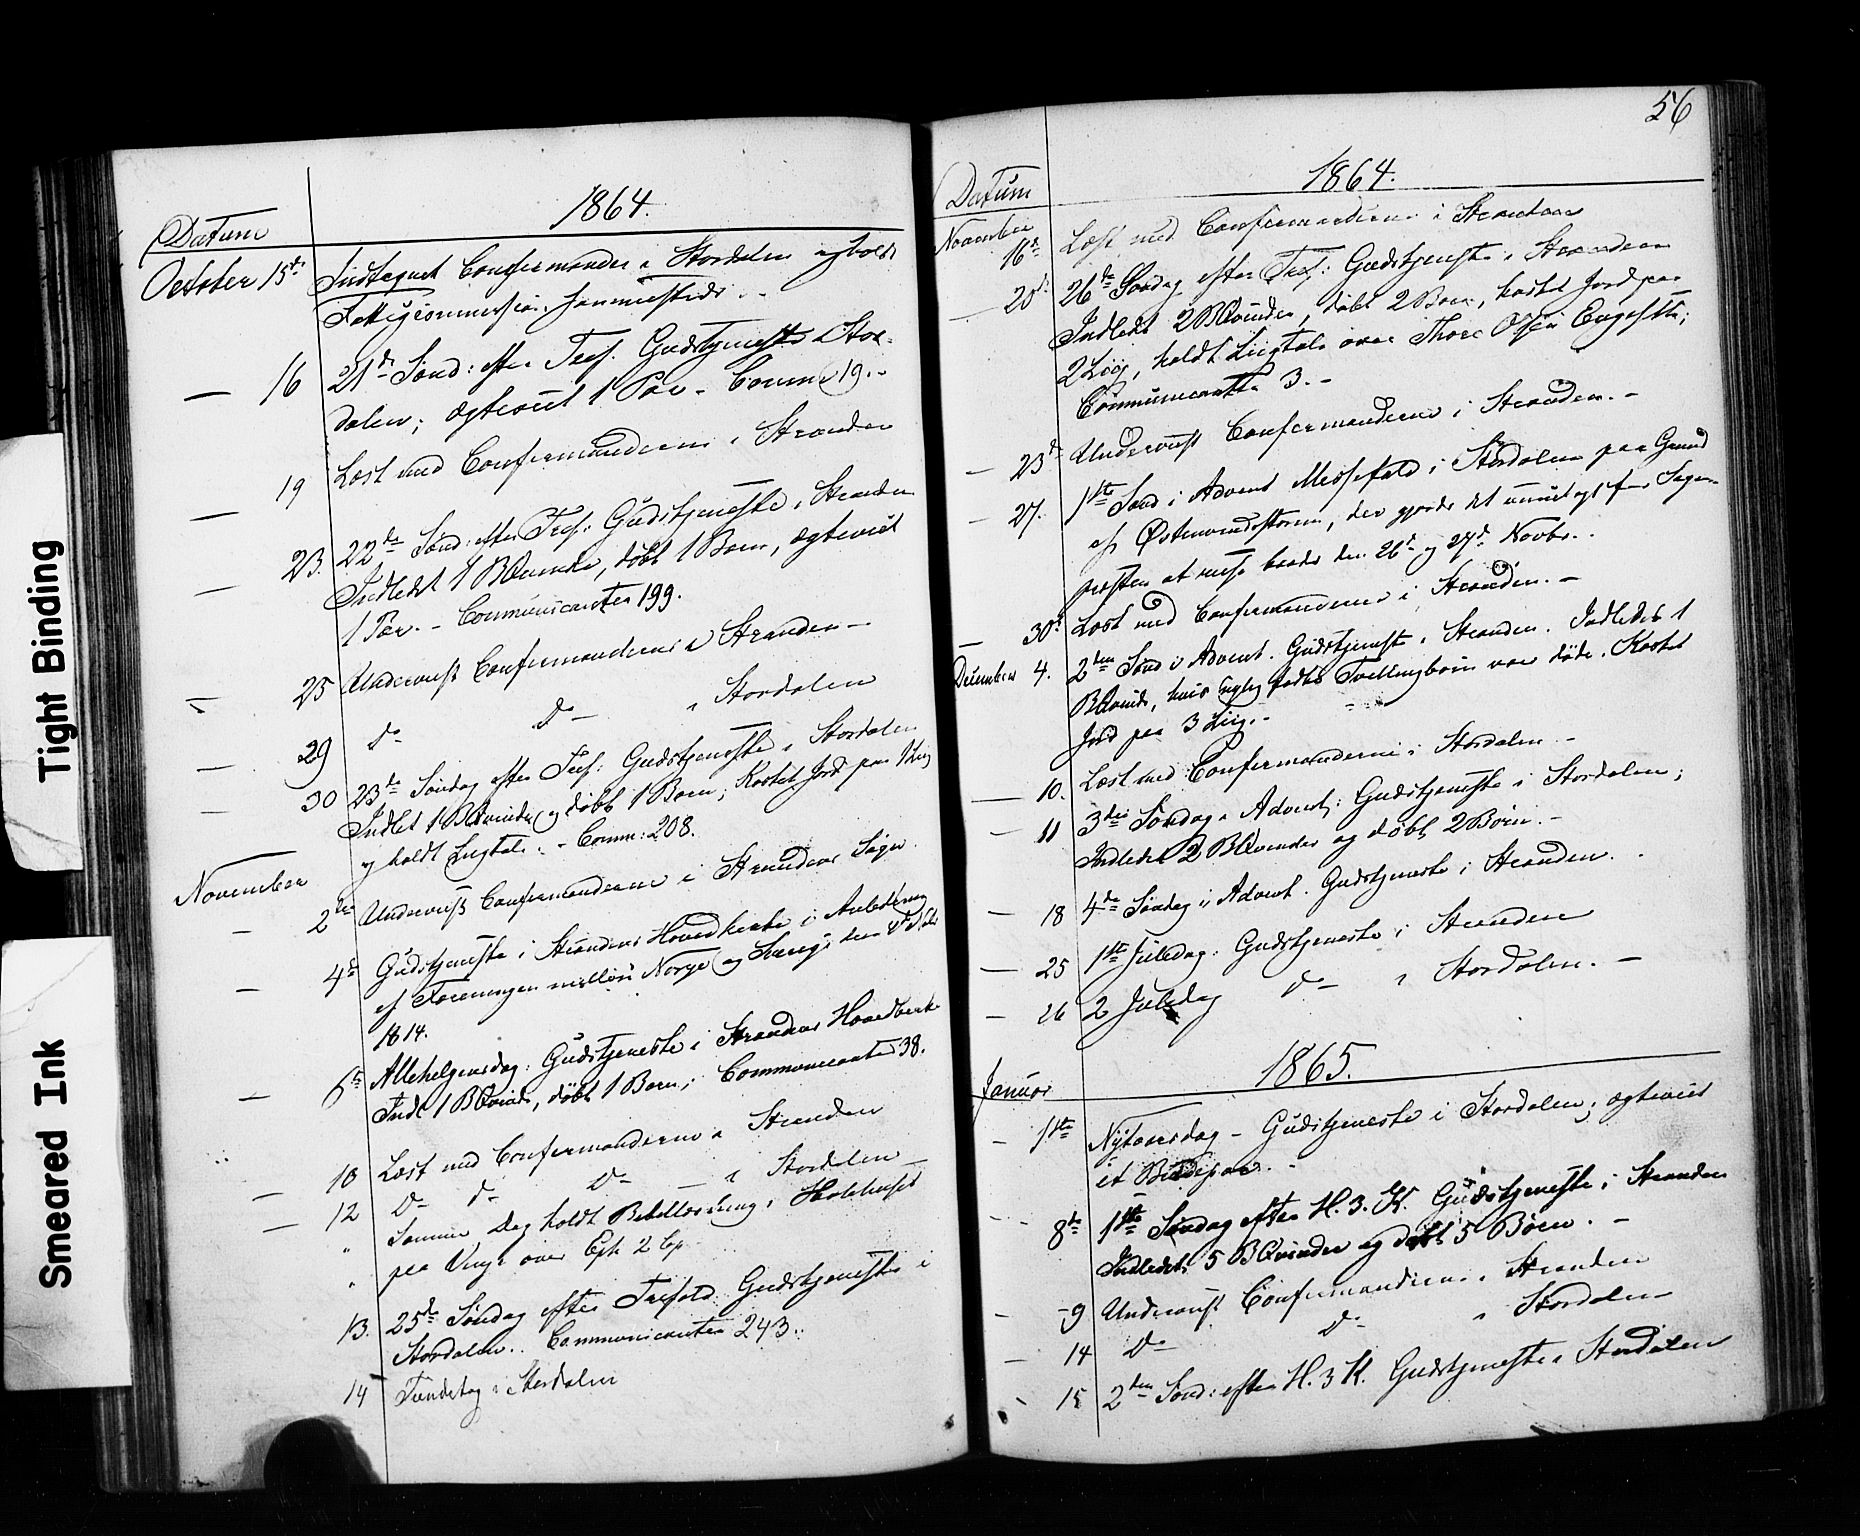 Tight Binding
Smeared Ink
Datum
1864.
October 15de Indtegnet Confirmander i Stordalen og holdt
Fattigcommission sammesteds. -
— 16 21de Sönd: efter Tref. Gudstjeneste i Stor-
dalen; ægteviet 1 Par - Comm 19. -
— 19 Læst med Confirmanderne i Stranden
— 23. 22de Sönd: efter Tref: Gudstjeneste i Stranden
Indledet 1 BQvinde, döbt 1 Barn, ægteviet
1 Par. - Communicanter 199.
— 25 Underviist Confirmanderne i Stranden —
— 29 do Do i Stordalen
— 30 23de Söndag efter Tref: Gudstjeneste i Stordalen
Indlet 1 BQvinde og döbt 1 Barn; Kastet Jord paa 1 Liig
og holdt Liigtale. - Comm: 208.
November
— 2den Underviist Confirmanderne i Strandens Sogn.
— 4de Gudstjeneste i Strandens Hovedkirke i Anledning
af Foreningen mellem Norge og Sverig den 4de Nov
1814.
— 6te Allehelgensdag: Gudstjeneste i Strandens Hovedkirke
Indl 1 BQvinde, döbt 1 Barn; Communicanter 38.
— 10 Læst med Confirmanderne i Stranden
— 12 Do do Do — i Stordalen —
" Samme Dag holdt Bibellæsning i
" paa over Eph 2 Cp
13. 25de Söndag efter Trefold: Gudstjeneste i
Stordalen.. Communicanter 243.
14 Tindedag i Stordalen
56
Datum
1864.
November
16de Læst med Confirmanderne i Stranden
— 20de 26de Söndag efter Tref: Gudstjeneste i Stranden
Indledt 2 BQvinder, döbt 2 Börn, kastet Jord paa
2 Liig, holdt Liigtale over Thore Olsen
Communicanter 3. -
— 23de Underviist Confirmanderne i Stranden. -
— 27. 1ste Sönd i Advent Messefald i Stordalen paa Grund
af Östenvindsstorm, der gjorde det umueligt for Sogne-
præsten at reise baade den 26de og 27de Novbr..
— 30te Læst med Confirmanderne i Stranden. -
December 4. 2den Sönd i Advent. Gudstjeneste i Stranden. Indledet 1
BQvinde, hvis nylig fødte Tvillingbörn var döde. Kastet
Jord paa 3 Liig. -
— 10. Læst med Confirmanderne i Stordalen -
— 11 3die Söndag i Advent: Gudstjeneste i Stordalen;
Indledet 2 BQvinder og döbt 2 Börn. -
— 18 4de Söndag i Advent. Gudstjeneste i Stranden.
— 25 1ste Juledag: Gudstjeneste i Stranden
— 26 2 Juledag Do i Stordalen. —
1865.
Januar
— 1ste Nytaarsdag - Gudstjeneste i Stordalen; ægteviet
et Brudepar. -
8de 1ste Söndag efter H. 3. K. Gudstjeneste i Stranden
Indledet 5 BQvinder og döbt 5 Börn. -
— 9 Underviist Confirmanderne i Stranden
— 14 Do Do i Stordalen
- 15 2den Sönd: efter H. 3 K. Gudstjeneste i Stordalen